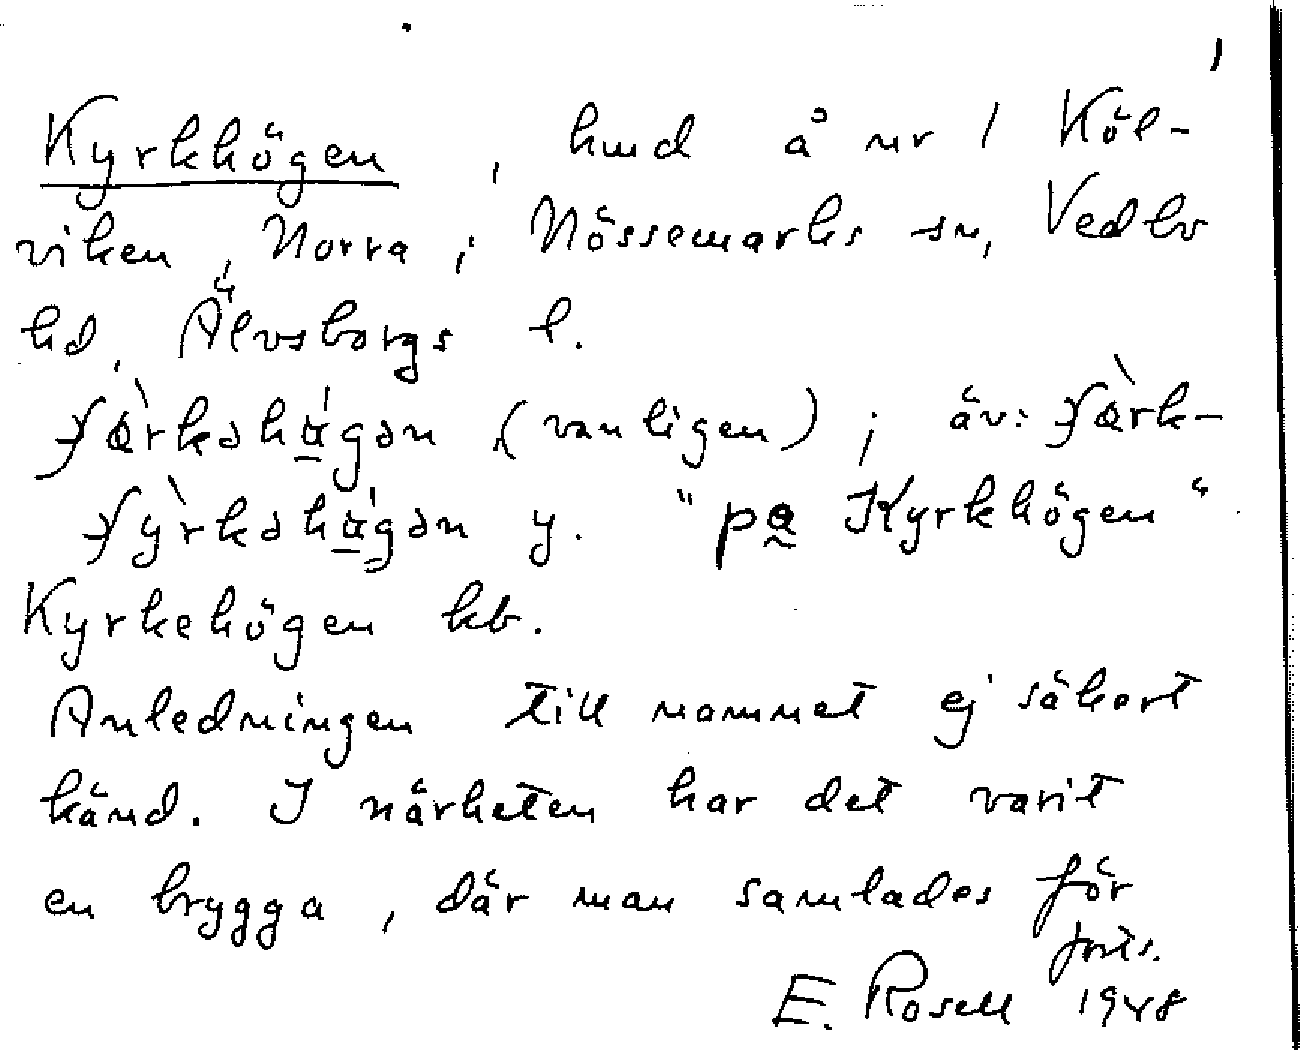 1
Kyrkhögen, hmd å nr 1 Köl-
viken, Norra, i Nössemarks sn, Vedbo
hd, Älvsborgs l.
(vanligen); äv:
y. "på Kyrkhögen"
Kyrkehögen kb.
Anledningen till namnet ej säkert
känd. I närheten har det varit
en brygga, där man samlades för
forts.
E. Rosell 1948